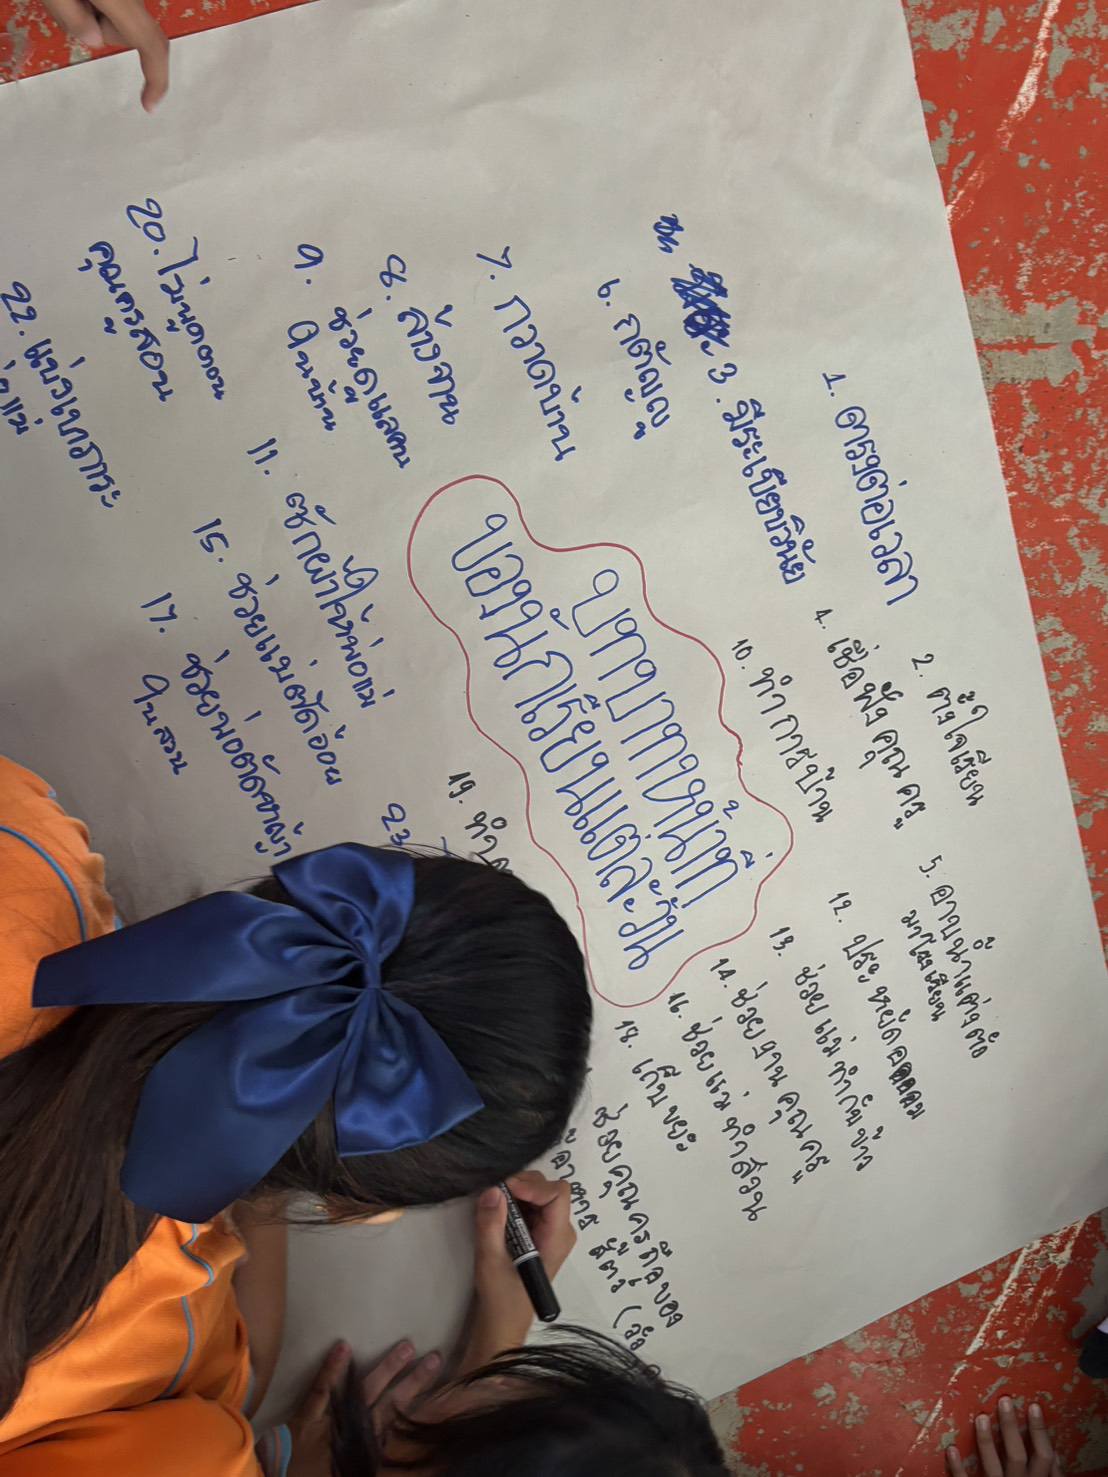 บทบาทหน้าที่
ของนักเรียนแต่ละระดับ
1. ตรงต่อเวลา
2. ตั้งใจเรียน
3. มีระเบียบวินัย
4. เชื่อฟังคุณครู
5. อ่านบท
เรียน
6. กตัญญู
7. กวาดบ้าน
8. ล้างจาน
9. ช่วยดูแลคน
ในบ้าน
10. ทำการบ้าน
11. ซักผ้าให้พ่อแม่
12. ประหยัดอด
13. ช่วยแม่ทำกับข้าว
14. ช่วยงานคุณครู
15. ช่วยแม่ตัดอ้อย
16. ช่วยแม่ดำนา
17. ช่วยพ่อตัดหญ้า
ในสวน
18. เก็บขยะ
19. ทำ
20. ไม่พูดตอน
คุณครูสอน
22. แบ่งเบาภาระ
พ่อแม่
23
ช่วยคุณครูถือของ